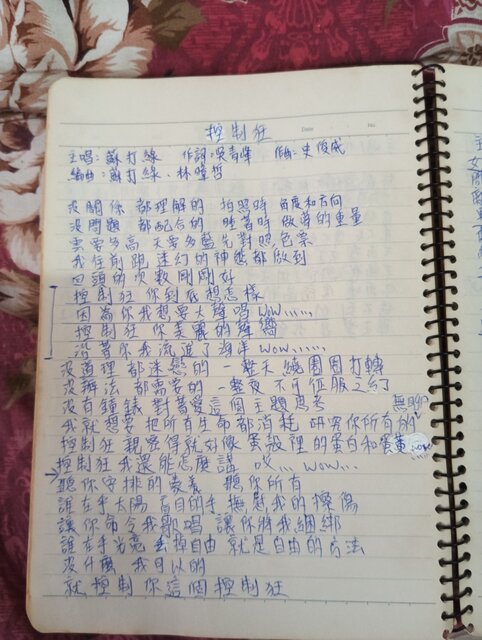 控制狂
Date
No.
主唱：蘇打綠 作詞：吳青峰 作曲：史俊威
編曲：蘇打綠、林暐哲
沒關係 都理解的 拍照時 角度和方向
沒問題 都配合的 睡著時 做夢的重量
雲要多高 天要多藍 先對照色票
我往前跑 迷幻的神態都做到
回頭的次數剛剛好
控制狂 你到底想怎樣
因為你我想要大聲唱 wow......
控制狂 你美麗的
沿著你我流進了海洋 wow......
沒道理 都迷戀的 一整天 繞圈圈打轉
沒辦法 都需要的 一整夜 不可征服之
沒有鐘錶 對著愛這個主題思考 無聊
我就想要把所有生命都消耗 研究你所有的
控制狂 親愛得就好像蛋殼裡的蛋白和蛋黃 wow
控制狂 我還能怎麼講 哎... wow...
聽你安排的 聽你所有
誰左手太陽 盲目的手 撫慰我的擦傷
讓你命令我歌唱 讓你將我綑綁
誰左手光亮 丟掉自由 就是自由的方法
沒什麼 我可以的
就控制你這個控制狂